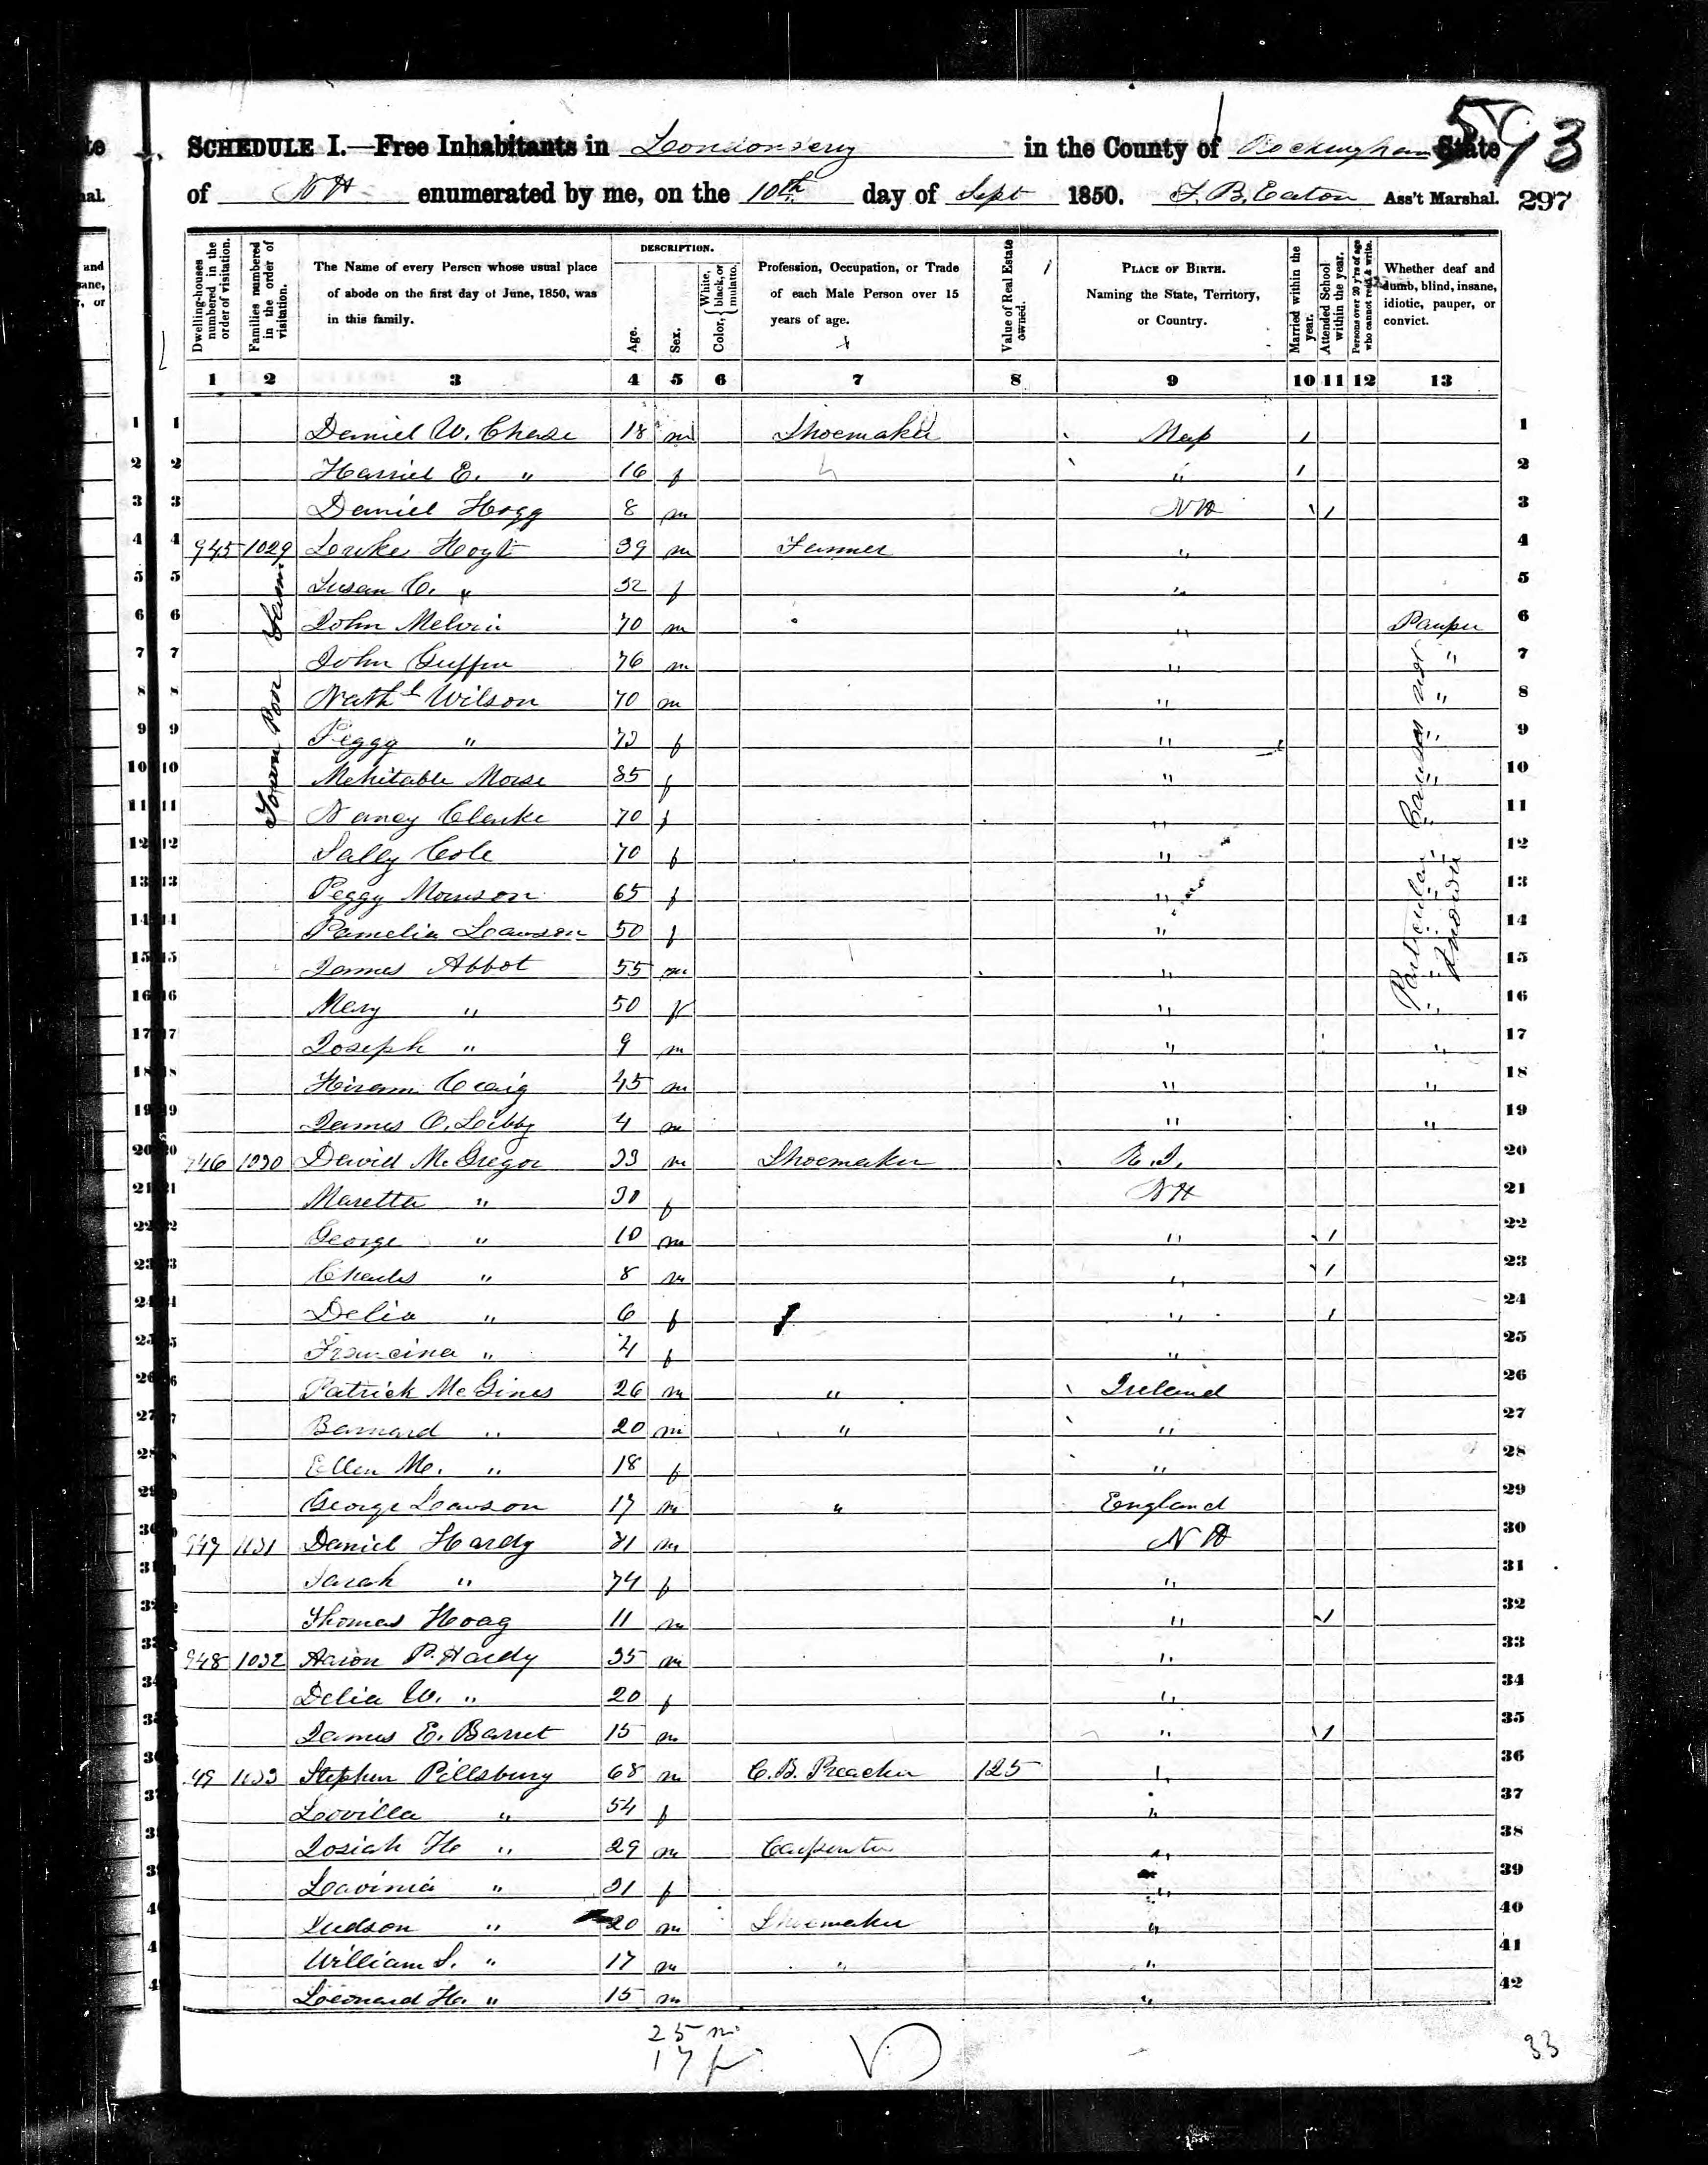 593
SCHEDULE I.—Free Inhabitants in Londonderry in the County of Rockingham State
of NH enumerated by me, on the 10th day of Sept 1850. F. B. Eaton Ass't Marshal. 297
Dwelling-houses numbered in the order of visitation.
Families numbered in the order of visitation.
The Name of every Person whose usual place of abode on the first day of June, 1850, was in this family.
DESCRIPTION.
Age.
Sex.
Color, White, black, or mulatto.
Profession, Occupation, or Trade of each Male Person over 15 years of age.
Value of Real Estate owned.
PLACE OF BIRTH. Naming the State, Territory, or Country.
Married within the year.
Attended School within the year.
Persons over 20 y'rs of age who cannot read & write.
Whether deaf and dumb, blind, insane, idiotic, pauper, or convict.
1 2 3 4 5 6 7 8 9 10 11 12 13
1 Daniel W. Chase 18 m Shoemaker Mass / 1
2 Harriet E. " 16 f " / 2
3 Daniel Hogg 8 m NH / 3
4 945 1029 Hoyt 39 m Farmer " 4
5 Susan C. " 32 f " 5
6 John Melvin 70 m " Pauper 6
7 John Griffin 76 m " " 7
8 Nathl Wilson 70 m " " 8
9 Peggy " 73 f " " 9
10 Mehitable Morse 85 f " " 10
11 Nancy Clarke 70 f " " 11
12 Sally Cole 70 f " " 12
13 Peggy Morrison 65 f " " 13
14 Pamelia Lawson 50 f " " 14
15 James Abbot 55 m " " 15
16 Mary " 50 f " " 16
17 Joseph " 9 m " " 17
18 Hiram Craig 45 m " " 18
19 James O. Libby 4 m " " 19
Town Poor Farm
Particular Causes not Known
20 946 1030 David McGregor 33 m Shoemaker R.I. 20
21 Maretta " 30 f NH 21
22 George " 10 m " / 22
23 Charles " 8 m " / 23
24 Delia " 6 f " / 24
25 Francina " 4 f " 25
26 Patrick McGines 26 m " Ireland 26
27 Barnard " 20 m " " 27
28 Ellen M. " 18 f " 28
29 George Lawson 17 m " England 29
30 947 1031 Daniel Hardy 81 m NH 30
31 Sarah " 74 f " 31
32 Thomas Hoag 11 m " / 32
33 948 1032 Aaron P. Hardy 35 m " 33
34 Delia W. " 20 f " 34
35 James E. Barret 15 m " / 35
36 49 1033 Stephen Pillsbury 68 m C. B. Preacher 125 " 36
37 Lovilla " 54 f " 37
38 Josiah H. " 29 m Carpenter " 38
39 Lavinia " 21 f " 39
40 Judson " 20 m Shoemaker " 40
41 William S. " 17 m " " 41
42 Leonard H. " 15 m " 42
25 m
17 f
33